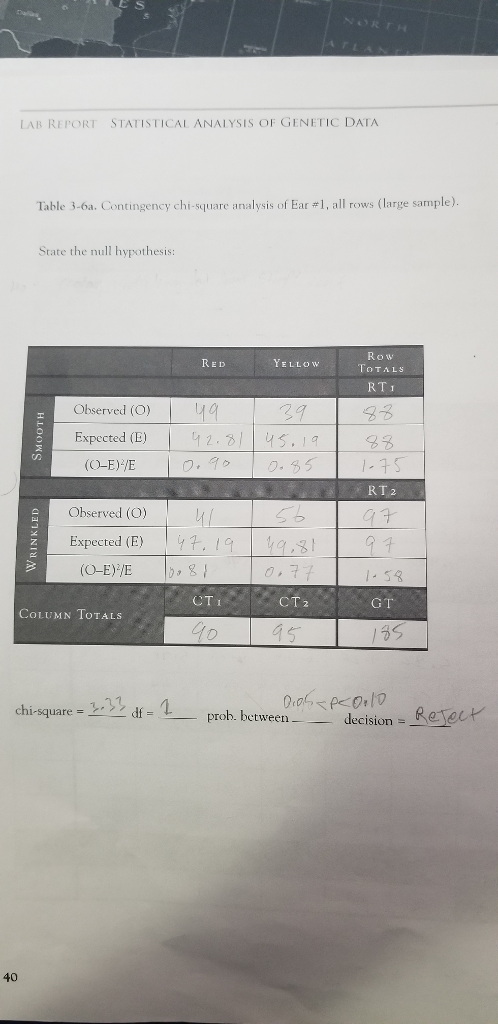 NORTH
LAB REPORT STATISTICAL ANALYSIS OF GENETIC DATA
Table 3-6a. Contingency chi-square analysis of Ear #1, all rows (large sample).
State the null hypothesis:
RED YELLOW ROW TOTALS
RT1
SMOOTH
Observed (O) 49 39 88
Expected (E) 42.81 45.19 88
(O–E)²/E 0.90 0.85 1.75
RT2
WRINKLED
Observed (O) 41 56 97
Expected (E) 47.19 49.81 97
(O–E)²/E 0.81 0.77 1.58
COLUMN TOTALS CT1 CT2 GT
90 95 185
chi-square = 3.33 df = 1 prob. between 0.05<P<0.10 decision = Reject
40